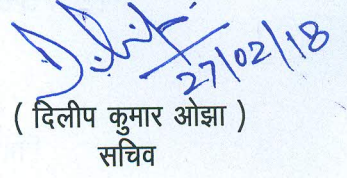 27/02/18
( दिलीप कुमार ओझा )
सचिव